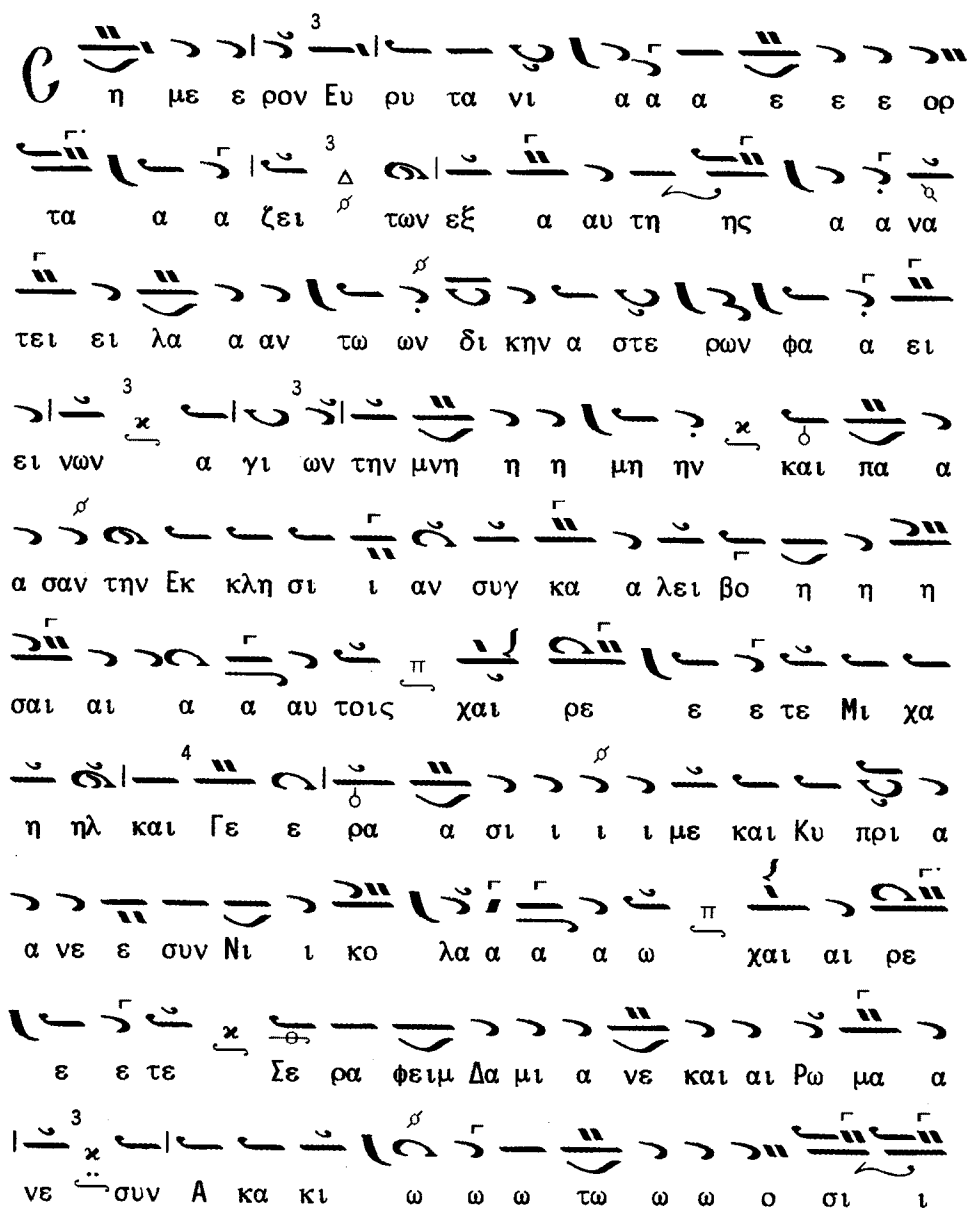 C η με ε ρον Ευ ρυ τα νι α α α ε ε ε ορ
τα α α ζει των εξ α αυ τη ης α α να
τει ει λα α αν τω ων δι κην α στε ρων φα α ει
ει νων α γι ων την μνη η η μη ην και πα α
α σαν την Εκ κλη σι ι αν συγ κα α λει βο η η η
σαι αι α α αυ τοις χαι ρε ε ε τε Μι χα
η ηλ και Γε ε ρα α σι ι ι ι με και Κυ πρι α
α νε ε συν Νι ι κο λα α α α ω χαι αι ρε
ε ε τε Σε ρα φειμ Δα μι α νε και αι Ρω μα α
νε συν Α κα κι ω ω ω τω ω ω ο σι ι